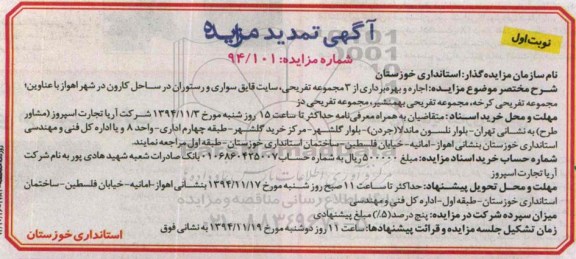 آگهی تمدید مزایده
نوبت اول
شماره مزایده: ۹۴/۱۰۱
نام سازمان مزایده گذار: استانداری خوزستان
شرح مختصر موضوع مزایده: اجاره و بهره برداری از ۳ مجموعه تفریحی، سایت قایق سواری و رستوران در ساحل کارون در شهر اهواز با عناوین؛
مجموعه تفریحی کرخه، مجموعه تفریحی بهمنشیر، مجموعه تفریحی دز
مهلت و محل خرید اسناد: متقاضیان به همراه معرفی نامه حداکثر تا ساعت ۱۵ روز شنبه مورخ ۱۳۹۴/۱۱/۳ شرکت آریا تجارت اسپروز (مشاور
طرح) به نشانی تهران - بلوار نلسون ماندلا (جردن) - بلوار گلشهر - مرکز خرید گلشهر - طبقه چهارم اداری - واحد ۸ و یا اداره کل فنی و مهندسی
استانداری خوزستان بنشانی اهواز - امانیه - خیابان فلسطین - ساختمان استانداری خوزستان - طبقه اول مراجعه نمایند.
شماره حساب خرید اسناد مزایده: مبلغ ۵۰۰۰۰۰ ریال به شماره حساب ۰۱۰۶۸۶۰۴۳۵۰۰۷ بانک صادرات شعبه شهید هادی پور به نام شرکت
آریا تجارت اسپروز
مهلت و محل تحویل پیشنهاد: حداکثر تا ساعت ۱۱ صبح روز شنبه مورخ ۱۳۹۴/۱۱/۱۷ بنشانی اهواز - امانیه - خیابان فلسطین - ساختمان
استانداری خوزستان - طبقه اول - اداره کل فنی و مهندسی
میزان سپرده شرکت در مزایده: پنج درصد (۵٪) مبلغ پیشنهادی
زمان تشکیل جلسه مزایده و قرائت پیشنهادها: ساعت ۱۱ روز دوشنبه مورخ ۱۳۹۴/۱۱/۱۹ به نشانی فوق
استانداری خوزستان